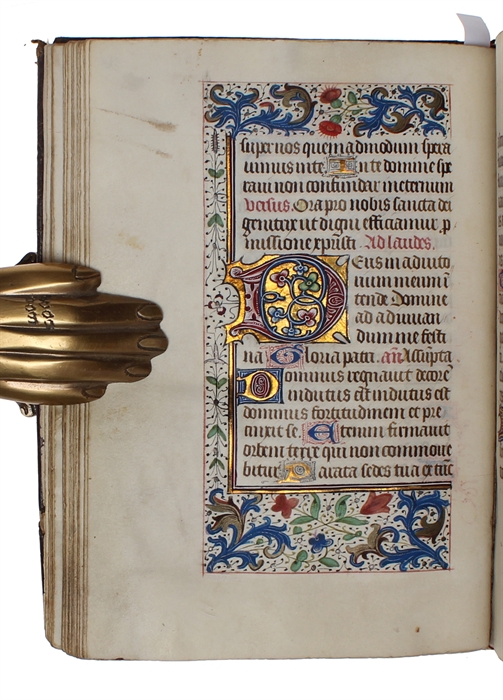 super nos quemadmodum spera
uimus in te In te domine spe
raui non confundar in eternum
versus. Ora pro nobis sancta dei
genitrix ut digni efficiamur p
missione xpristi. Ad laudes.
Deus in adiuto
rium meum in
tende Domine
ad adiuuan
dum me festi
na Gloria patri. añ Assūpta
Dominus regnauit decorē
indutus est indutus est
dominus fortitudinem et pre
cinxit se. Etenim firmauit
orbem terre qui non commoue
bitur Parata sedes tua ex tūc